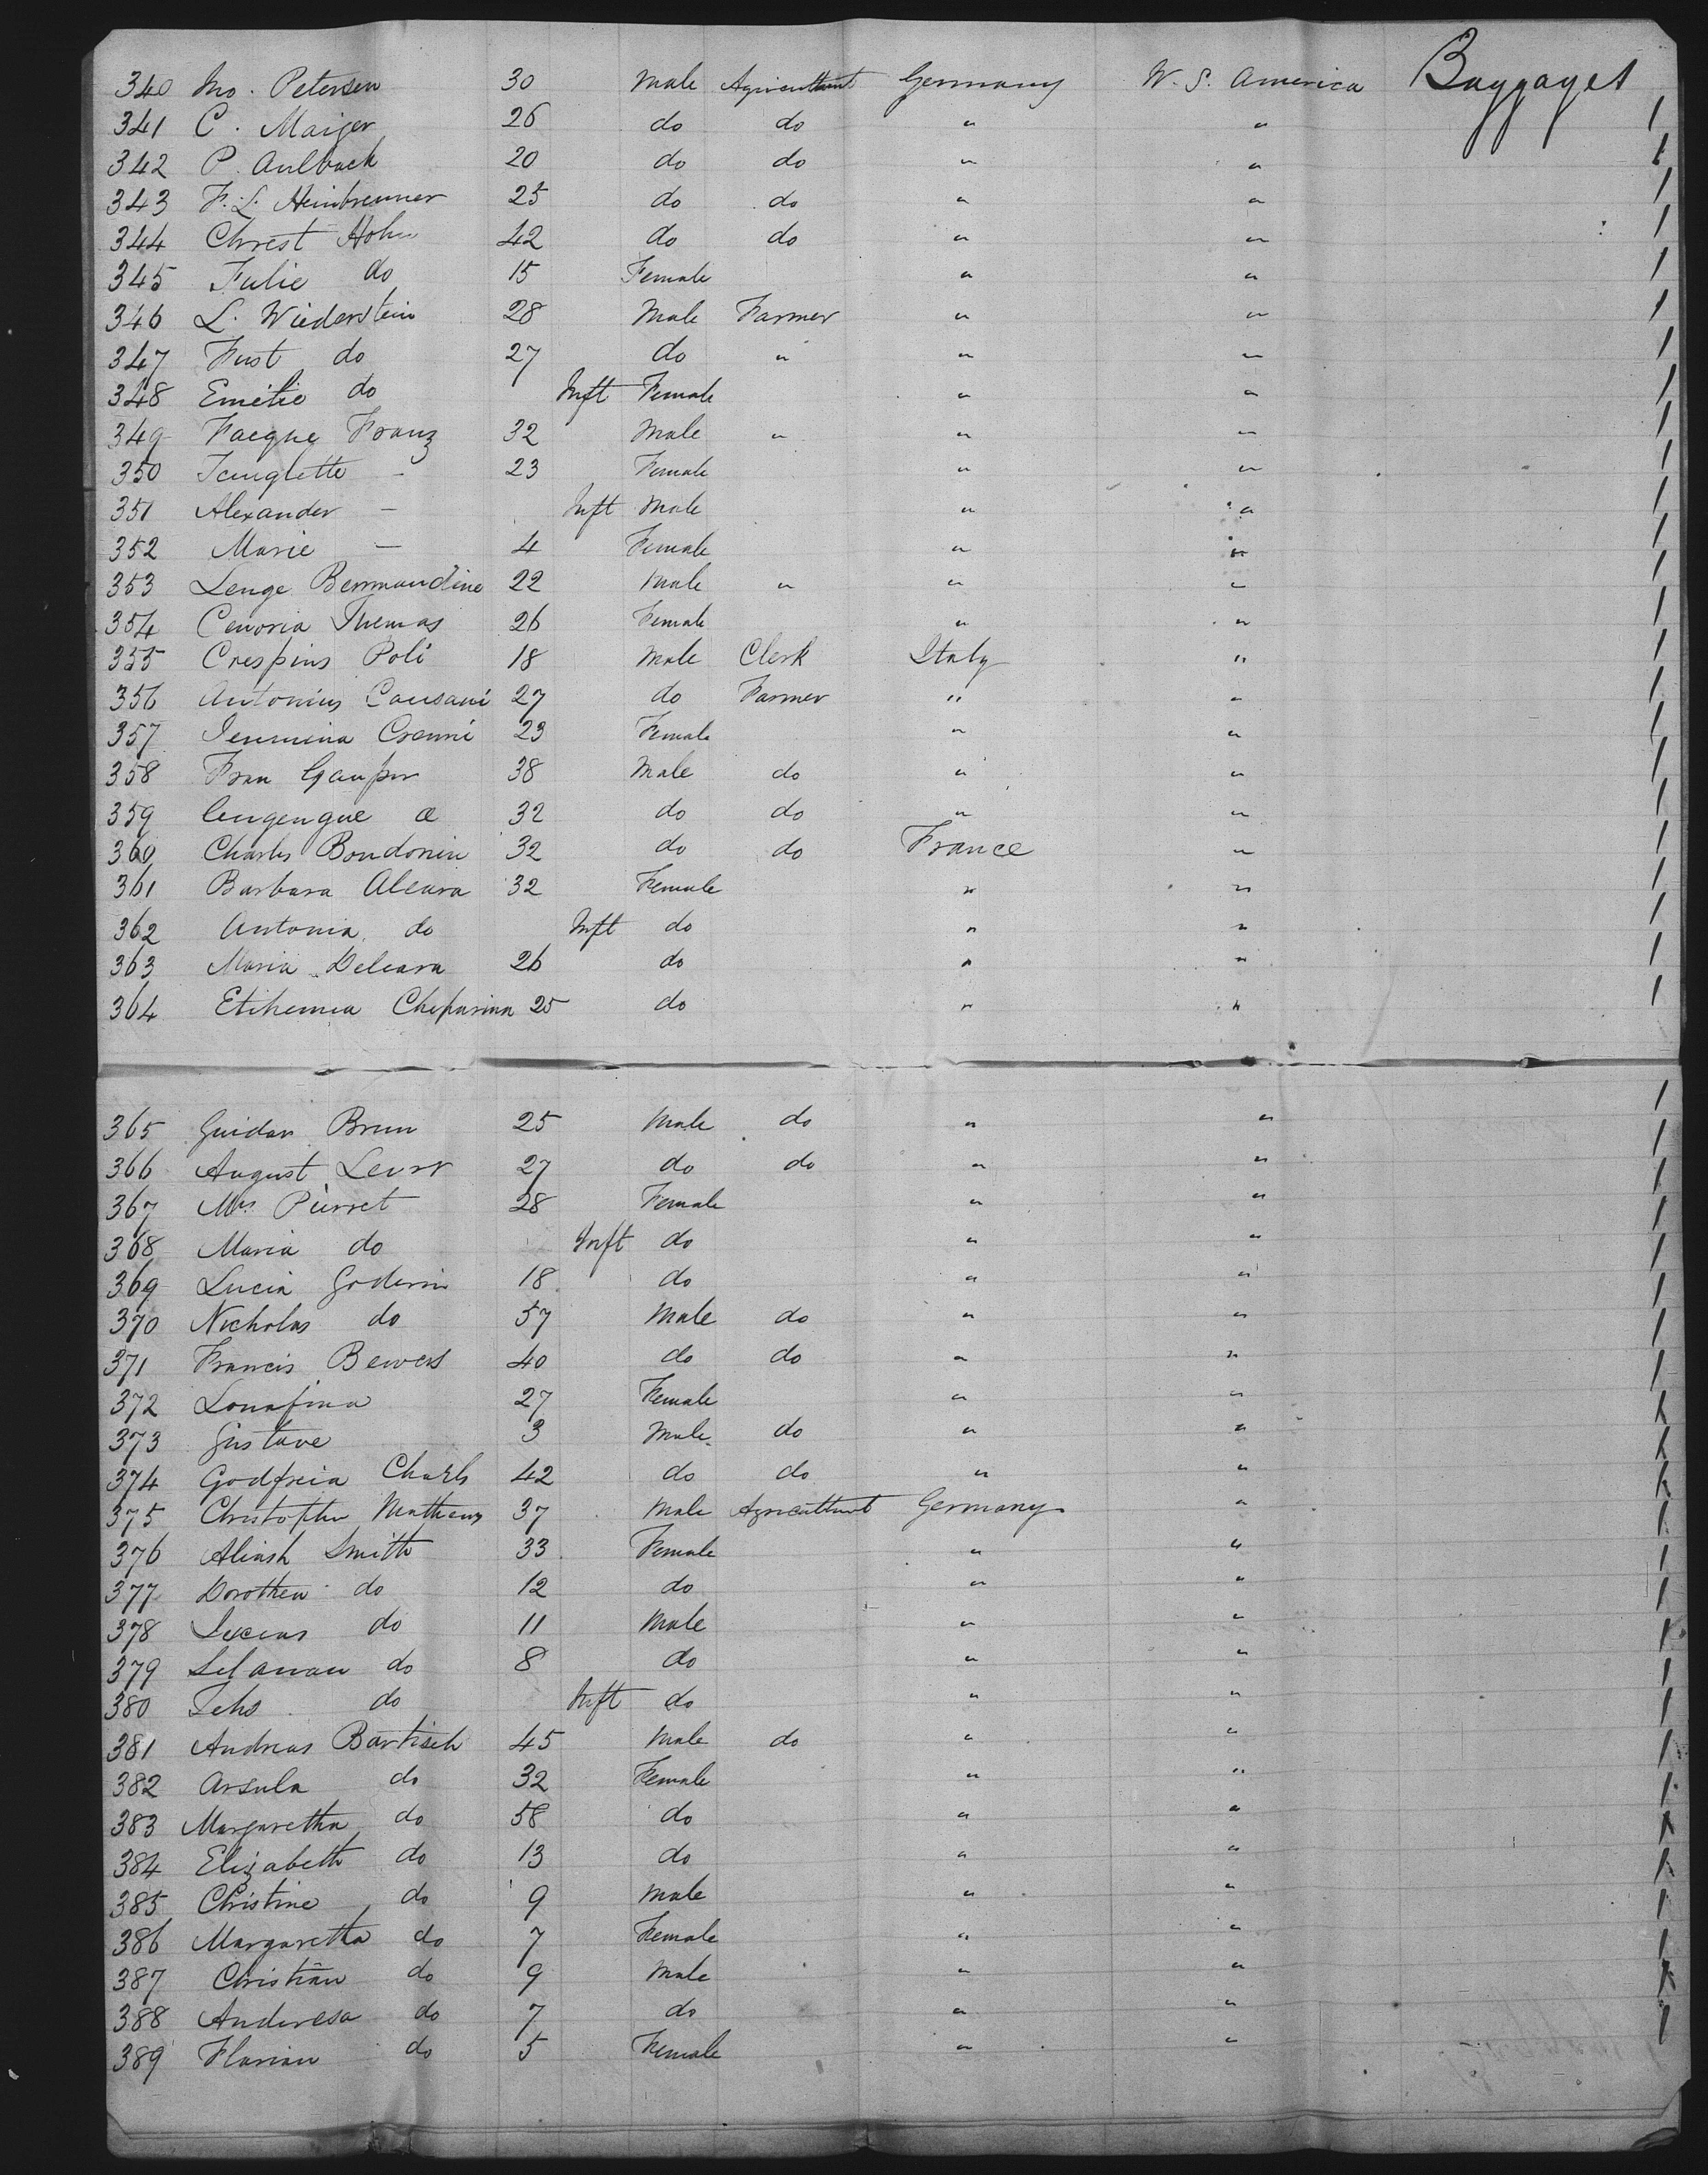 340 Mo. Petersen 30 Male Agriculturist Germany U. S. America Baggages
341 C. Maiger 26 do do " " 1
342 P. Aulbach 20 do do " " 1
343 F. L. Heinbrenner 25 do do " " 1
344 Christ Hohn 42 do do " " 1
345 Julie do 15 Female " " 1
346 L. Wiederstein 28 Male Farmer " " 1
347 Just do 27 do " " " 1
348 Emélie do Inft Female " " 1
349 Jacque Franz 32 Male " " " 1
350 – 23 Female " " 1
351 Alexander – Inft Male " " 1
352 Marie – 4 Female " " 1
353 Lenge Bermandine 22 Male " " " 1
354 Cenoria Thomas 26 Female " " 1
355 Crespins Poli 18 Male Clerk Italy " 1
356 Antonius Cansani 27 do Farmer " " 1
357 23 Female " " 1
358 Fran 38 Male do " " 1
359 32 do do " " 1
360 Charles Boudonin 32 do do France " 1
361 Barbara Aleara 32 Female " " 1
362 Antonia do Inft do " " 1
363 Maria Deleara 26 do " " 1
364 Etihemia Cheparina 25 do " " 1
365 Guidan Brun 25 Male do " " 1
366 August 27 do do " " 1
367 Mrs Pierret 28 Female " " 1
368 Maria do Inft do " " 1
369 Lucia 18 do " " 1
370 Nicholas do 57 Male do " " 1
371 Francis Bewers 40 do do " " 1
372 Lonafina 27 Female " " 1
373 Gustave 3 Male do " "
374 Godfreia Charls 42 do do " "
375 Christopher Mathews 37 Male Agriculturist Germany "
376 Aliash Smith 33 Female " " 1
377 Dorothea do 12 do " " 1
378 Lucius do 11 Male " " 1
379 do 8 do " " 1
380 do Inft do " " 1
381 Andreas Bartisch 45 Male do " " 1
382 Arsula do 32 Female " " 1
383 Margaretha do 58 do " " 1
384 Elizabeth do 13 do " "
385 Christine do 9 Male " " 1
386 Margaretha do 7 Female " " 1
387 Christian do 9 Male " " 1
388 Anderesa do 7 do " " 1
389 Florian do 5 Female " "